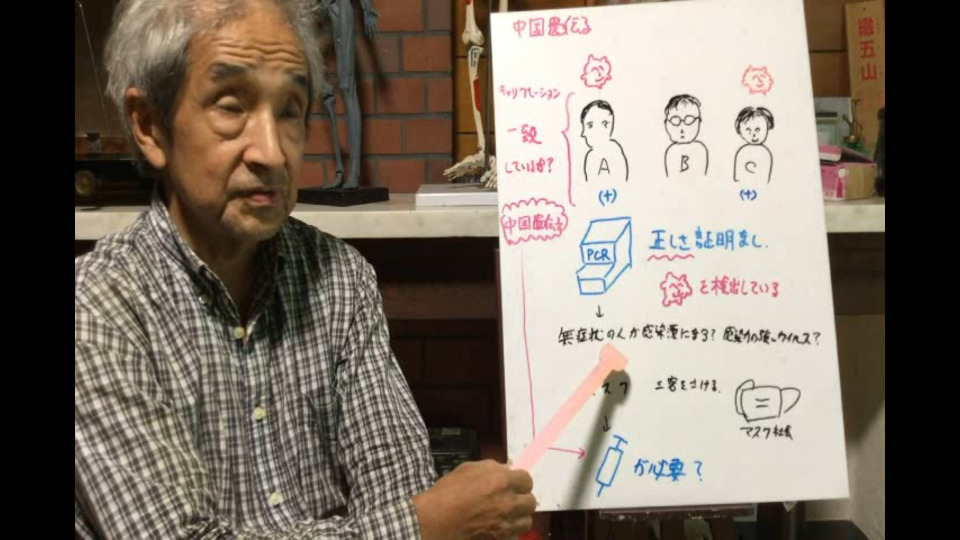 中国遺伝子
キャリブレーション
一致
しているか?
A
B
C
(+)
(+)
中国遺伝子
PCR
正しさ証明なし.
を検出している
無症状の人が感染源になる? 感染力の強いウイルス?
スク
三密をさける.
マスク社会
が必要?
五山